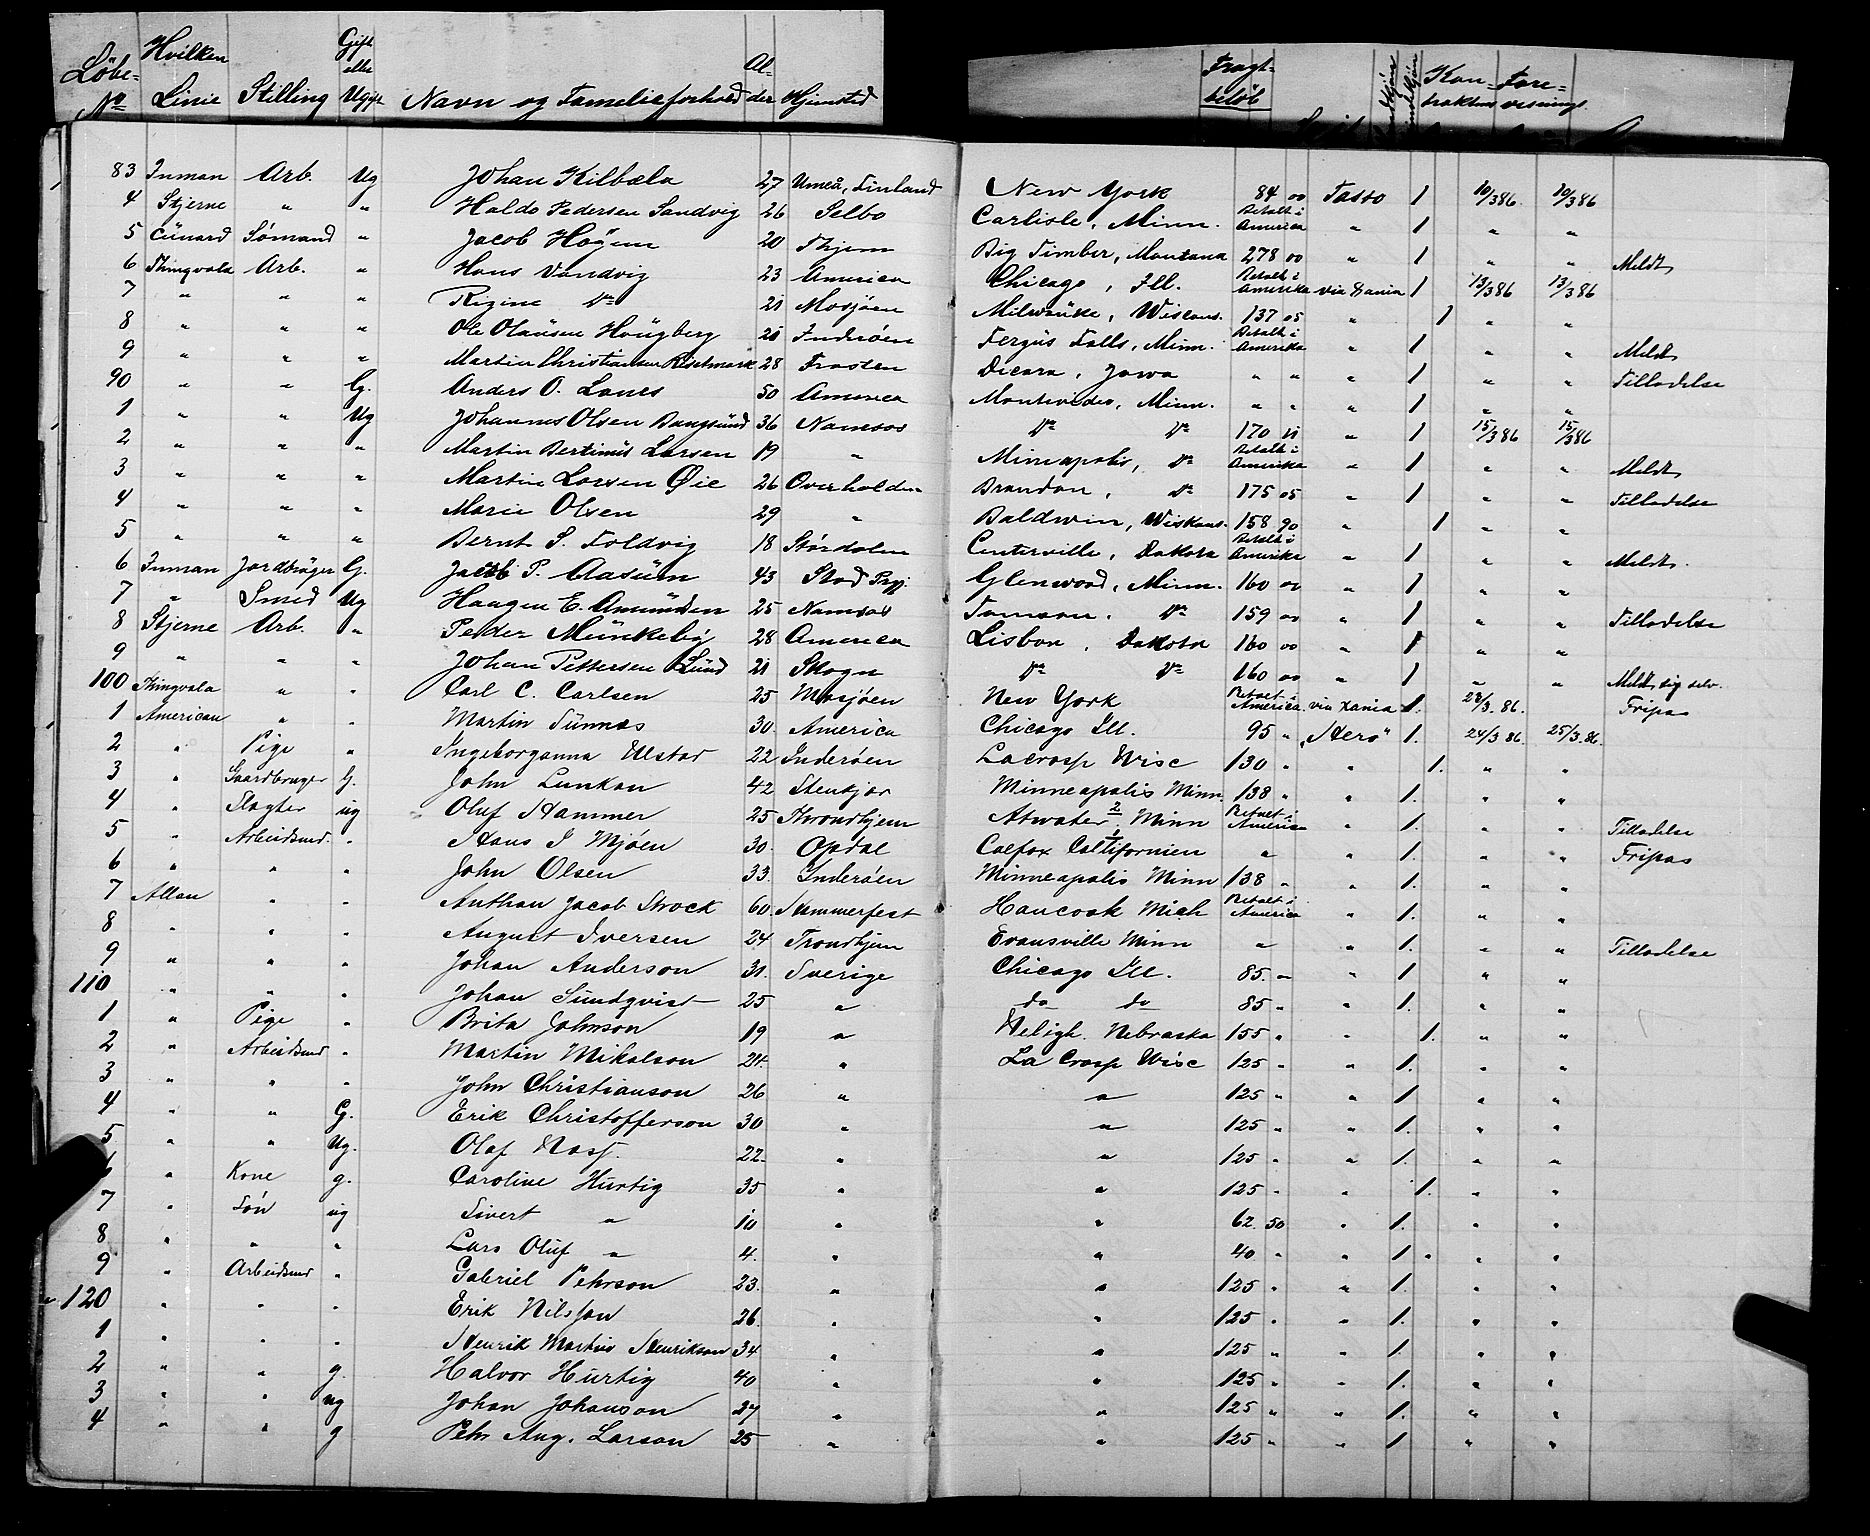 Löbe- No Hvilken Linie Stilling Gift eller Ugift Navn og Famelieforhold Alder Hjemsted Fragtbeløb Kontraktens Forevisnings
83 Inman Arb. Ug Johan Kilbæla 27 Umeå, Finland New York 84 00 Tasso 1 10/3 86 10/3 86
4 Stjerne " " Haldo Pedersen Sandvig 26 Selbo Carlisle, Minn. Betalt i Amerika " 1 " "
5 Cunard Sømand " Jacob Hogem 20 Thjem Big Timber, Montana 278 00 " 1 " " Meldt
6 Thingvala Arb. " Hans Vandvig 23 America Chicago, Ill. Betalt i Amerika via Dania 1 13/3 86 13/3 86
7 " " " Regine Do 21 Mosjøen Milwaukee, Wiscons. 137 05 " 1 " "
8 " " " Ole Olausen Hougberg 21 Inderøen Fergus Falls, Minn. Betalt i Amerika " 1 " " Meldt
9 " " " Martin Christiansen 28 Frosten Dicara, Jowa " " " 1 " " Tilladelse
90 " " G. Anders O. Lones 50 America Montevideo, Minn. " " " 1 " "
1 " " Ug Johannes Olsen Bangsund 36 Namsos Do Do 170 " 1 15/3 86 15/3 86
2 " " " Martin Bertinus Larsen 19 " Minneapolis, Do Betalt i Amerika " 1 " " Meldt
3 " " " Martin Larsen Øie 26 Overhalden Brandon, Do 175 05 " 1 " " Tilladelse
4 " " " Marie Olsen 29 " Baldwin, Wiskons. 158 90 " 1 " "
5 " " " Bernt S. Foldvig 18 Størdalen Centerville, Dakota Betalt i Amerika " 1 " " Meldt.
6 Inman Jordbruger G. Jacob P. Aasum 43 Stod Pgj. Glenwood, Minn. 160 00 " 1 " "
7 " Smed Ug Haagen E. Amundsen 25 Namsos Tomson, Do 159 00 " 1 " " Tilladelse
8 Stjerne Arb. " Peder Munkeby 28 America Lisbon, Dakota 160 00 " 1 " "
9 " " " Johan Pettersen Lund 21 Skogn Do Do 160 00 " 1 " " Meldt sig selv.
100 Thingvala " " Carl C. Carlsen 25 Mosjøen New York Betalt i America. via Xania 1. 23/3. 86. Fripas
1 American " " Martin Sunnes 30. America Chicago Ill. 95 " "Hero" 1. 24/3 86. 25/3. 86.
2 " Pige " Ingeborganna Ulstad 22 Inderøen Lacrosse Wisc 130 " " 1. " "
3 " Gaardbruger G. John Lunkan 42 Stenkjær Minneapolis Minn. 138 " " 1. " "
4 " Slagter ug Oluf Hammer 25 Throndhjem Atwater 2 Minn Betalt i America " 1. " " Tilladelse
5 " Arbeidsmd. " Hans J Mjøen 30. Opdal Colfox 1 Californien " " 1. " " Fripas
6 " " " John Olsen 33. Inderøen Minneapolis Minn 138 " " 1. " "
7 Allan " " Anthon Jacob Strock 60. Hammerfest Hancook Mich Betalt i America " 1. " "
8 " " " August Iversen 24 Trondhjem Evansville Minn " " 1. " " Tilladelse
9 " " " Johan Anderson 31. Sverige Chicago Ill. 85. " " 1 " "
110 " " " Johan Sundqvist 25 " do do 85 " " 1. " "
1 " Pige " Brita Johnson 19 " Neligh. Nebraska 155 " " 1. " "
2 " Arbeidsmd " Martin Mikalson 21. " La Crosse Wisc 125 " " 1. " "
3 " " " John Christianson 26 " " 125 " " 1 " "
4 " " G. Erik Christofferson 30 " " 125 " " 1. " "
5 " " Ug. Olaf Næss. 22. " " 125 " " 1. " "
6 " Kone g. Caroline Hurtig 35 " " 125 " " 1. " "
7 " Søn ug Sivert " 10 " " 62. 50 " 1. " "
8 " " " Lars Oluf " 4. " " 40 " " 1 " " "
9 " Arbeidsmd " Gabriel Pehrson 23. " " 125 " " 1. " "
120 " " " Erik Nilsson 26. " " 125 " " 1. " "
1 " " " Henrik Martin Henrikson 34 " " 125 " " 1. " "
2 " " g. Halvor Hurtig 40 " " 125 " " 1. " "
3 " " ug Johan Johanson 27 " " 125 " " 1. " "
4 " " g Pehr Aug. Larson 25 " " 125 " " 1 " "